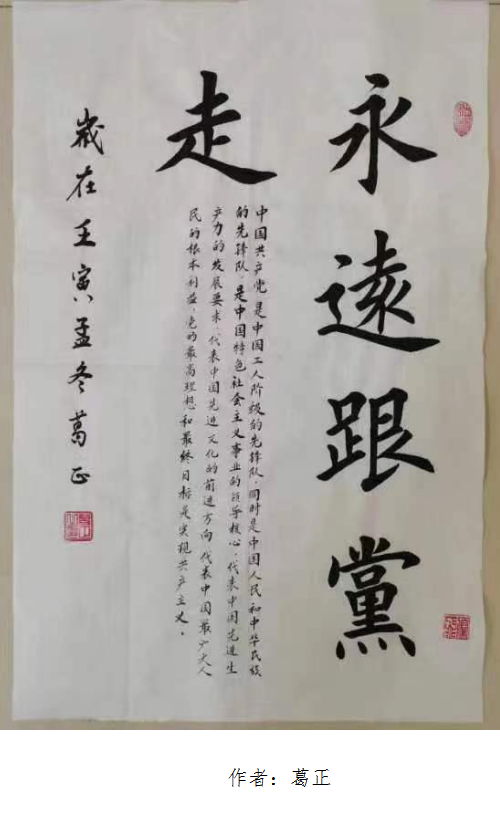 永遠跟黨
走
中国共产党是中国工人阶级的先锋队，同时是中国人民和中华民族
的先锋队，是中国特色社会主义事业的领导核心，代表中国先进生
产力的发展要求，代表中国先进文化的前进方向，代表中国最广大人
民的根本利益，党的最高理想和最终目标是实现共产主义。
歲在壬寅孟冬葛正
作者：葛正